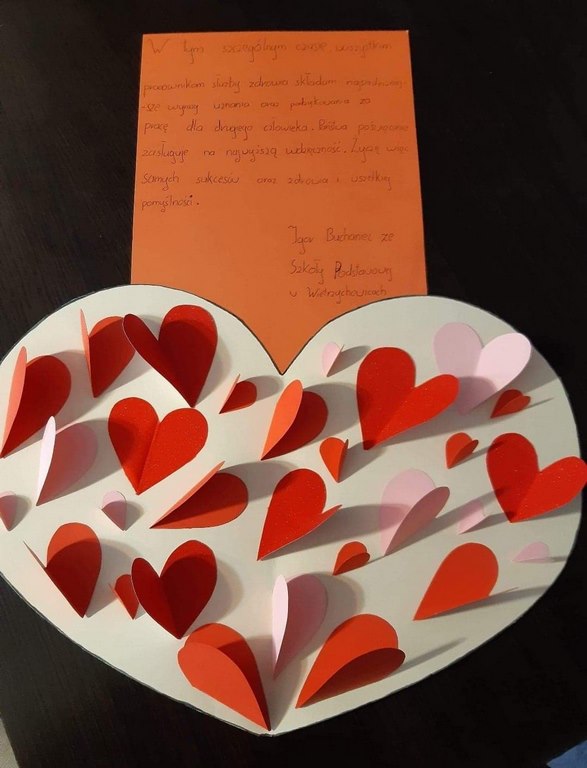 W tym szczególnym czasie, wszystkim
pracownikom służby zdrowia składam najserdeczniej-
-sze wyrazy uznania oraz podziękowania za
pracę dla drugiego człowieka. Państwa poświęcenie
zasługuje na najwyższą wdzięczność. Życzę więc
samych sukcesów oraz zdrowia i wszelkiej
pomyślności.
Igor Buchaniec ze
Szkoły Podstawowej
w Wietrzychowicach